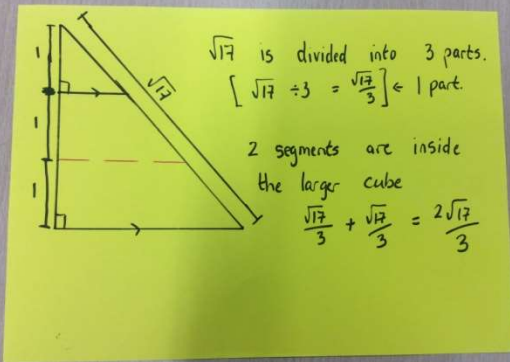 1
1
1
√17
√17 is divided into 3 parts.
[ √17 ÷ 3 = √17/3 ] ← 1 part.
2 segments are inside
the larger cube
√17/3 + √17/3 = 2√17/3